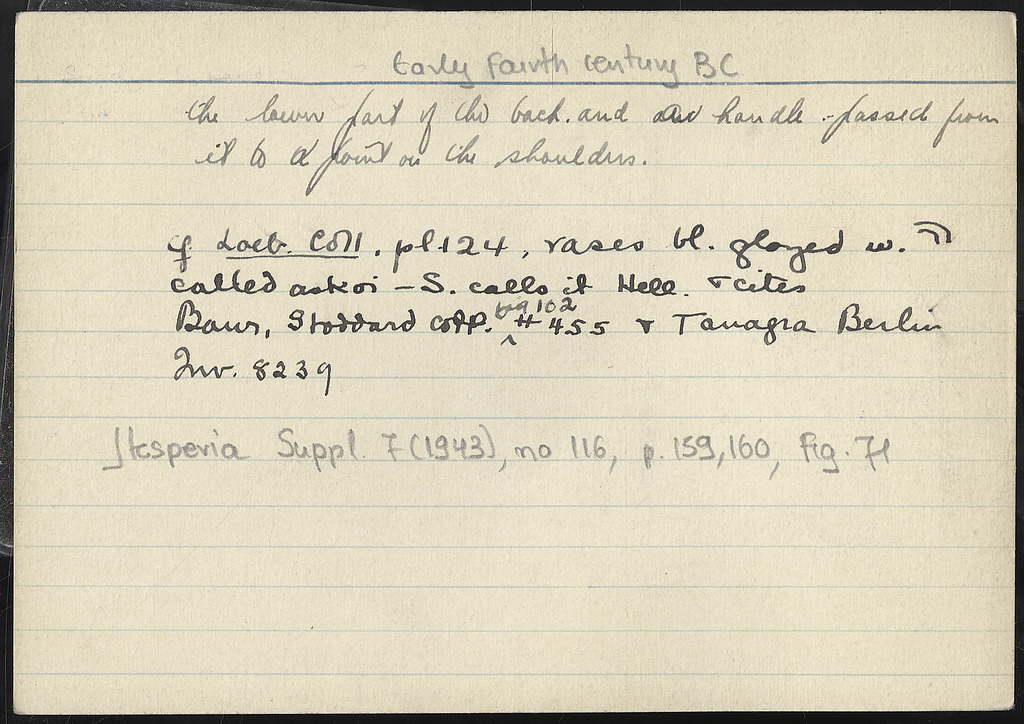 Early Fourth century BC
the lower part of the back. and handle passed from
it to a point on the shoulders.
cf Loeb. Coll, pl 124, vases bl. glazed w.
called askoi – S. calls it Hell. + cites
Baur, Stoddard coll. fig 102 # 455 + Tanagra Berlin
Inv. 8239
Hesperia Suppl. 7 (1943), no 116, p. 159, 160, Fig. 71